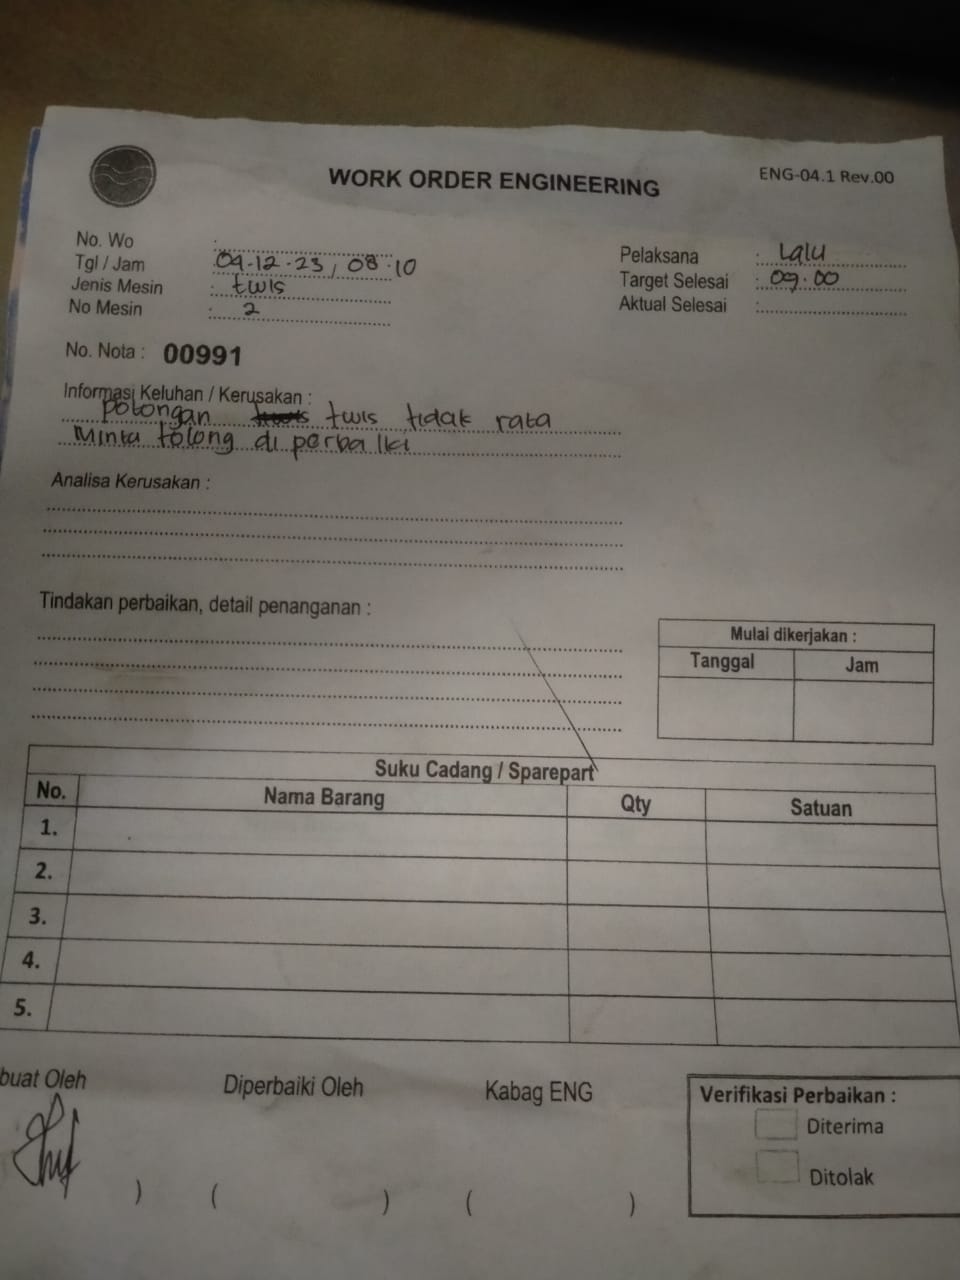 WORK ORDER ENGINEERING
ENG-04.1 Rev.00
No. Wo :
Tgl / Jam : 09-12-23, 08.10
Jenis Mesin : twis
No Mesin : 2
Pelaksana : Lalu
Target Selesai : 09.00
Aktual Selesai :
No. Nota : 00991
Informasi Keluhan / Kerusakan :
potongan twis tidak rata
Minta tolong di perbaiki
Analisa Kerusakan :
Tindakan perbaikan, detail penanganan :
Mulai dikerjakan :
Tanggal Jam
Suku Cadang / Sparepart
No. Nama Barang Qty Satuan
1.
2.
3.
4.
5.
buat Oleh Diperbaiki Oleh Kabag ENG
) ( ) ( )
Verifikasi Perbaikan :
Diterima
Ditolak